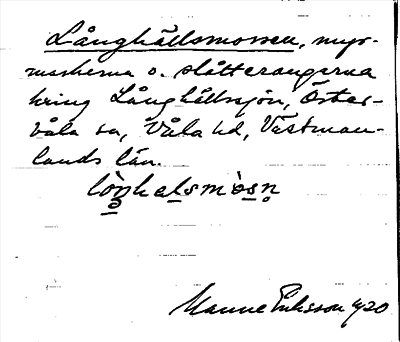 Långhällsmossen, myr-
markerna o. slåtterängarna
kring Långhällssjön, Öster-
våla sn, Våla hd, Västman-
lands län.
Manne Eriksson